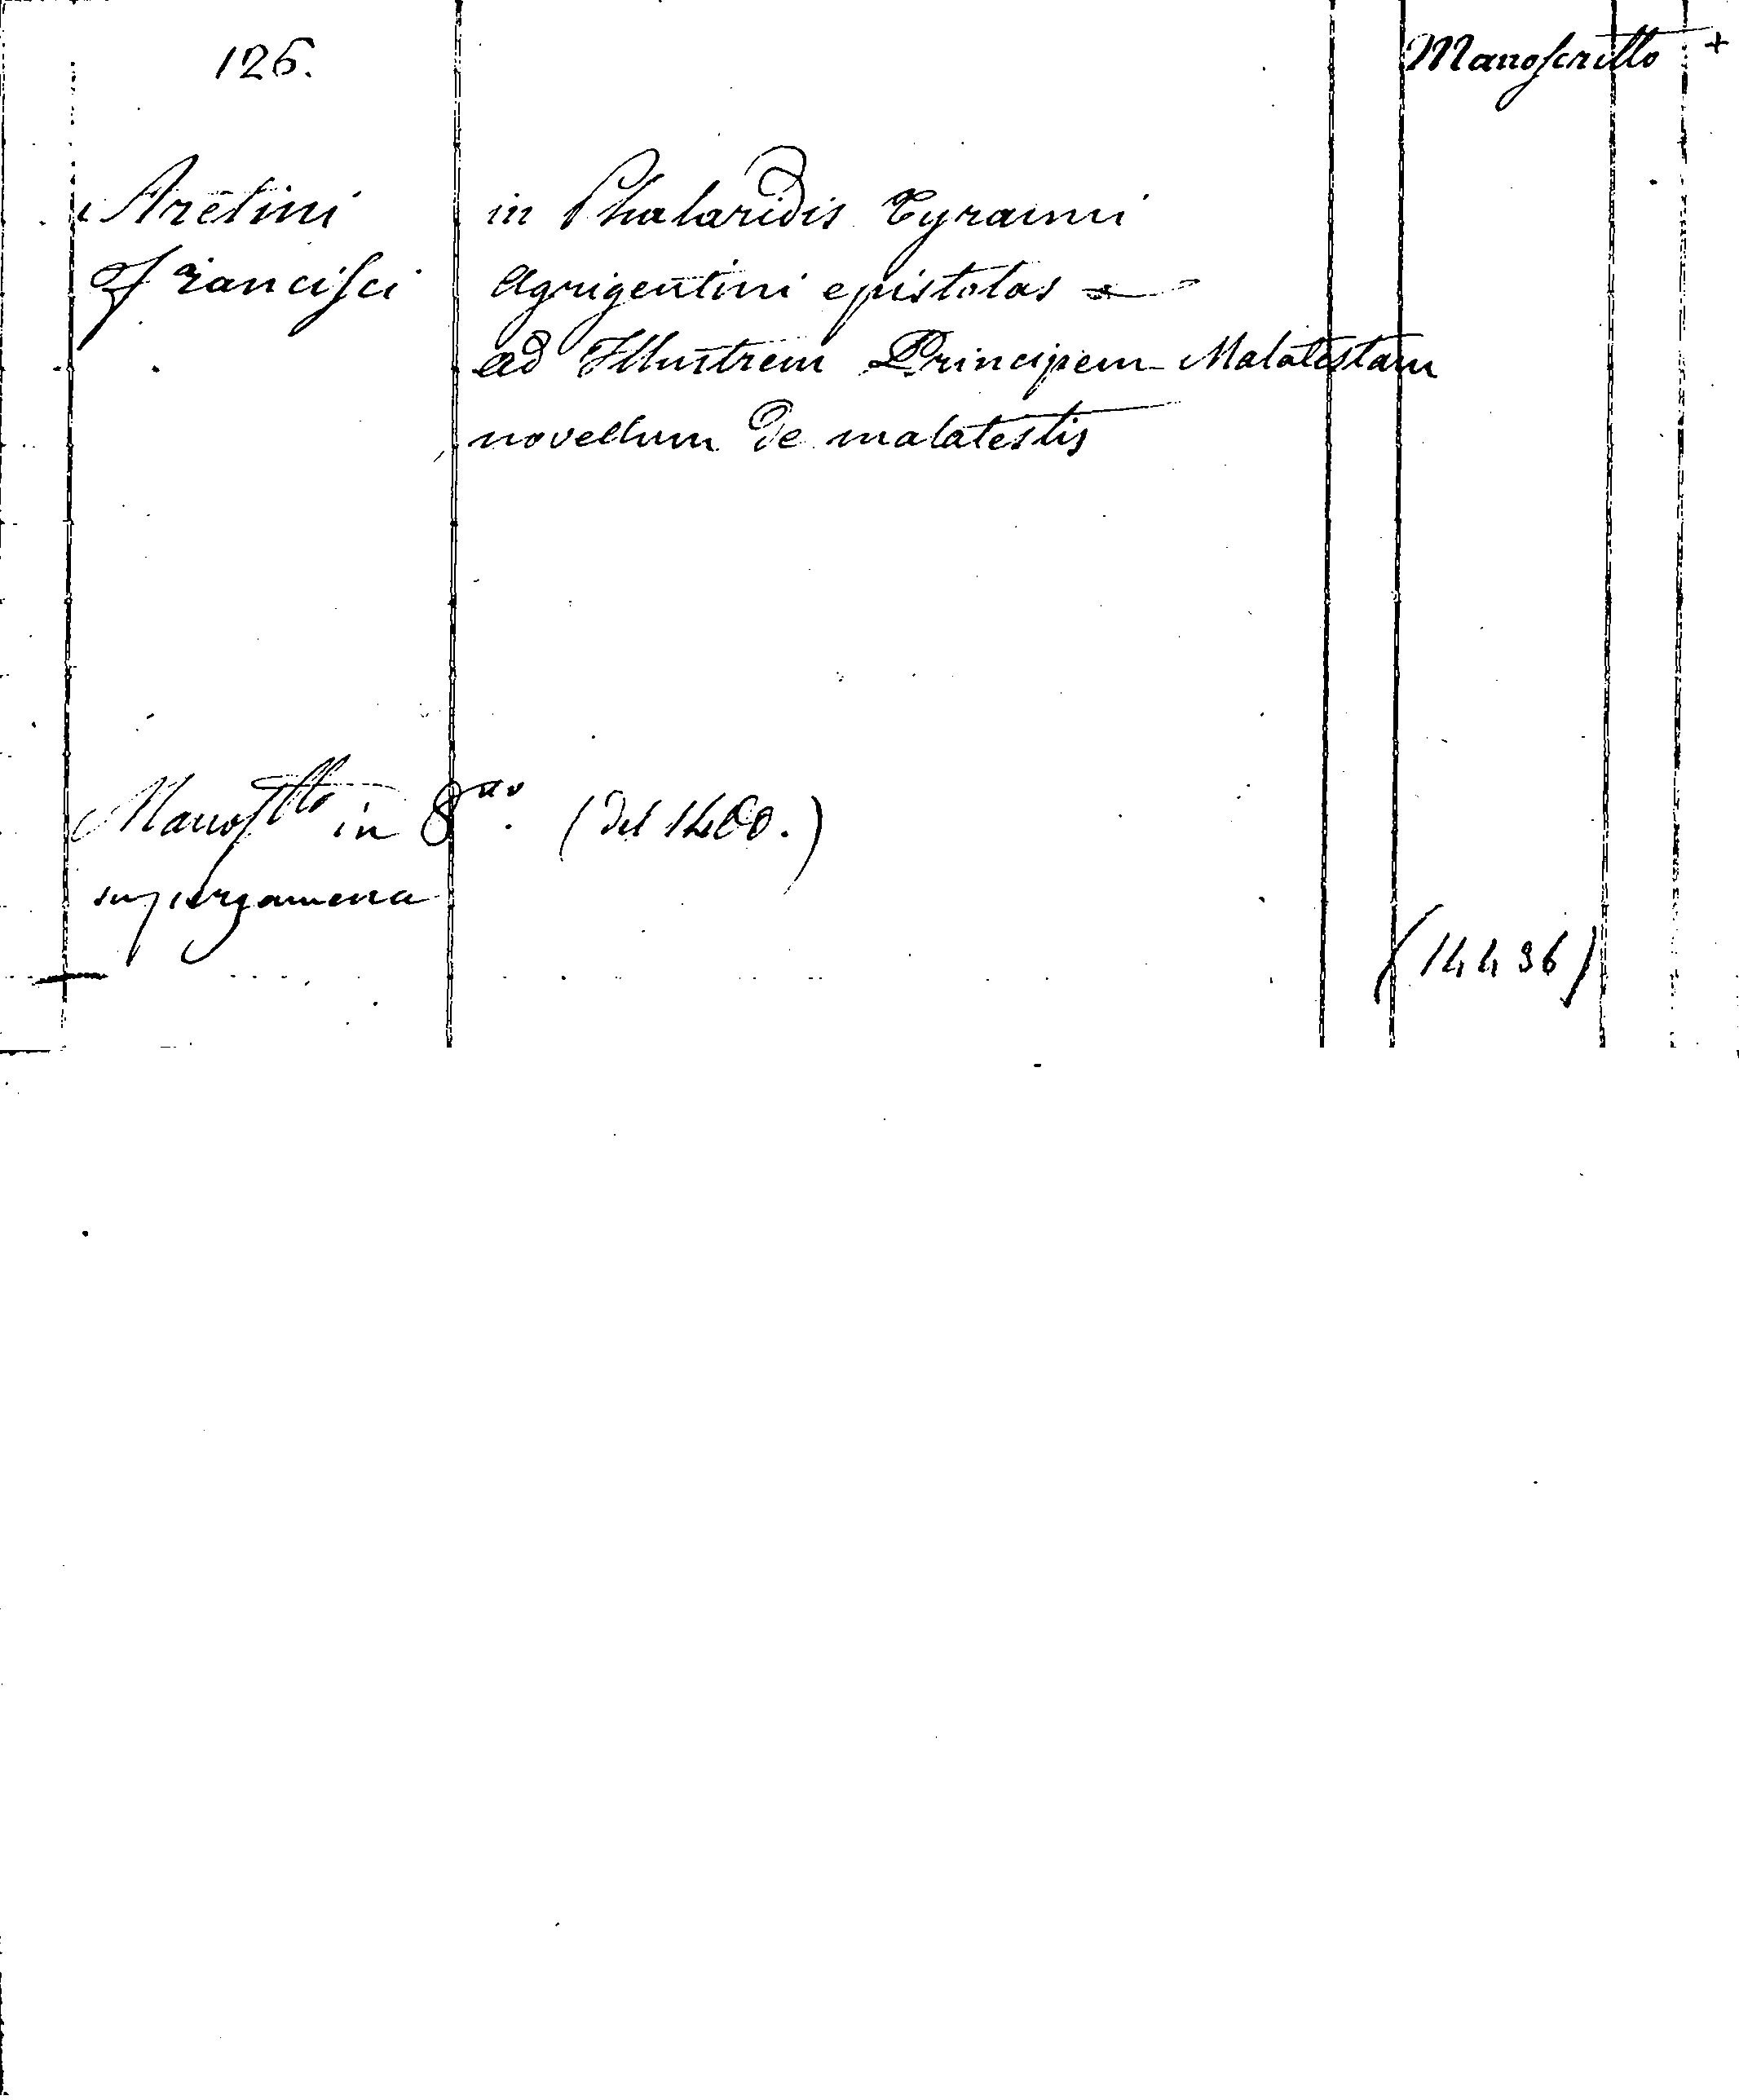 126.
Manoscritto +
Aretini in Phalaridis Tyranni
Francisci Agrigentini epistolas
ad Illustrem Principem Malatestam
novellum de malatestis
Manosṭto in 8vo. (del 1400.)
in pergamena
(14436)